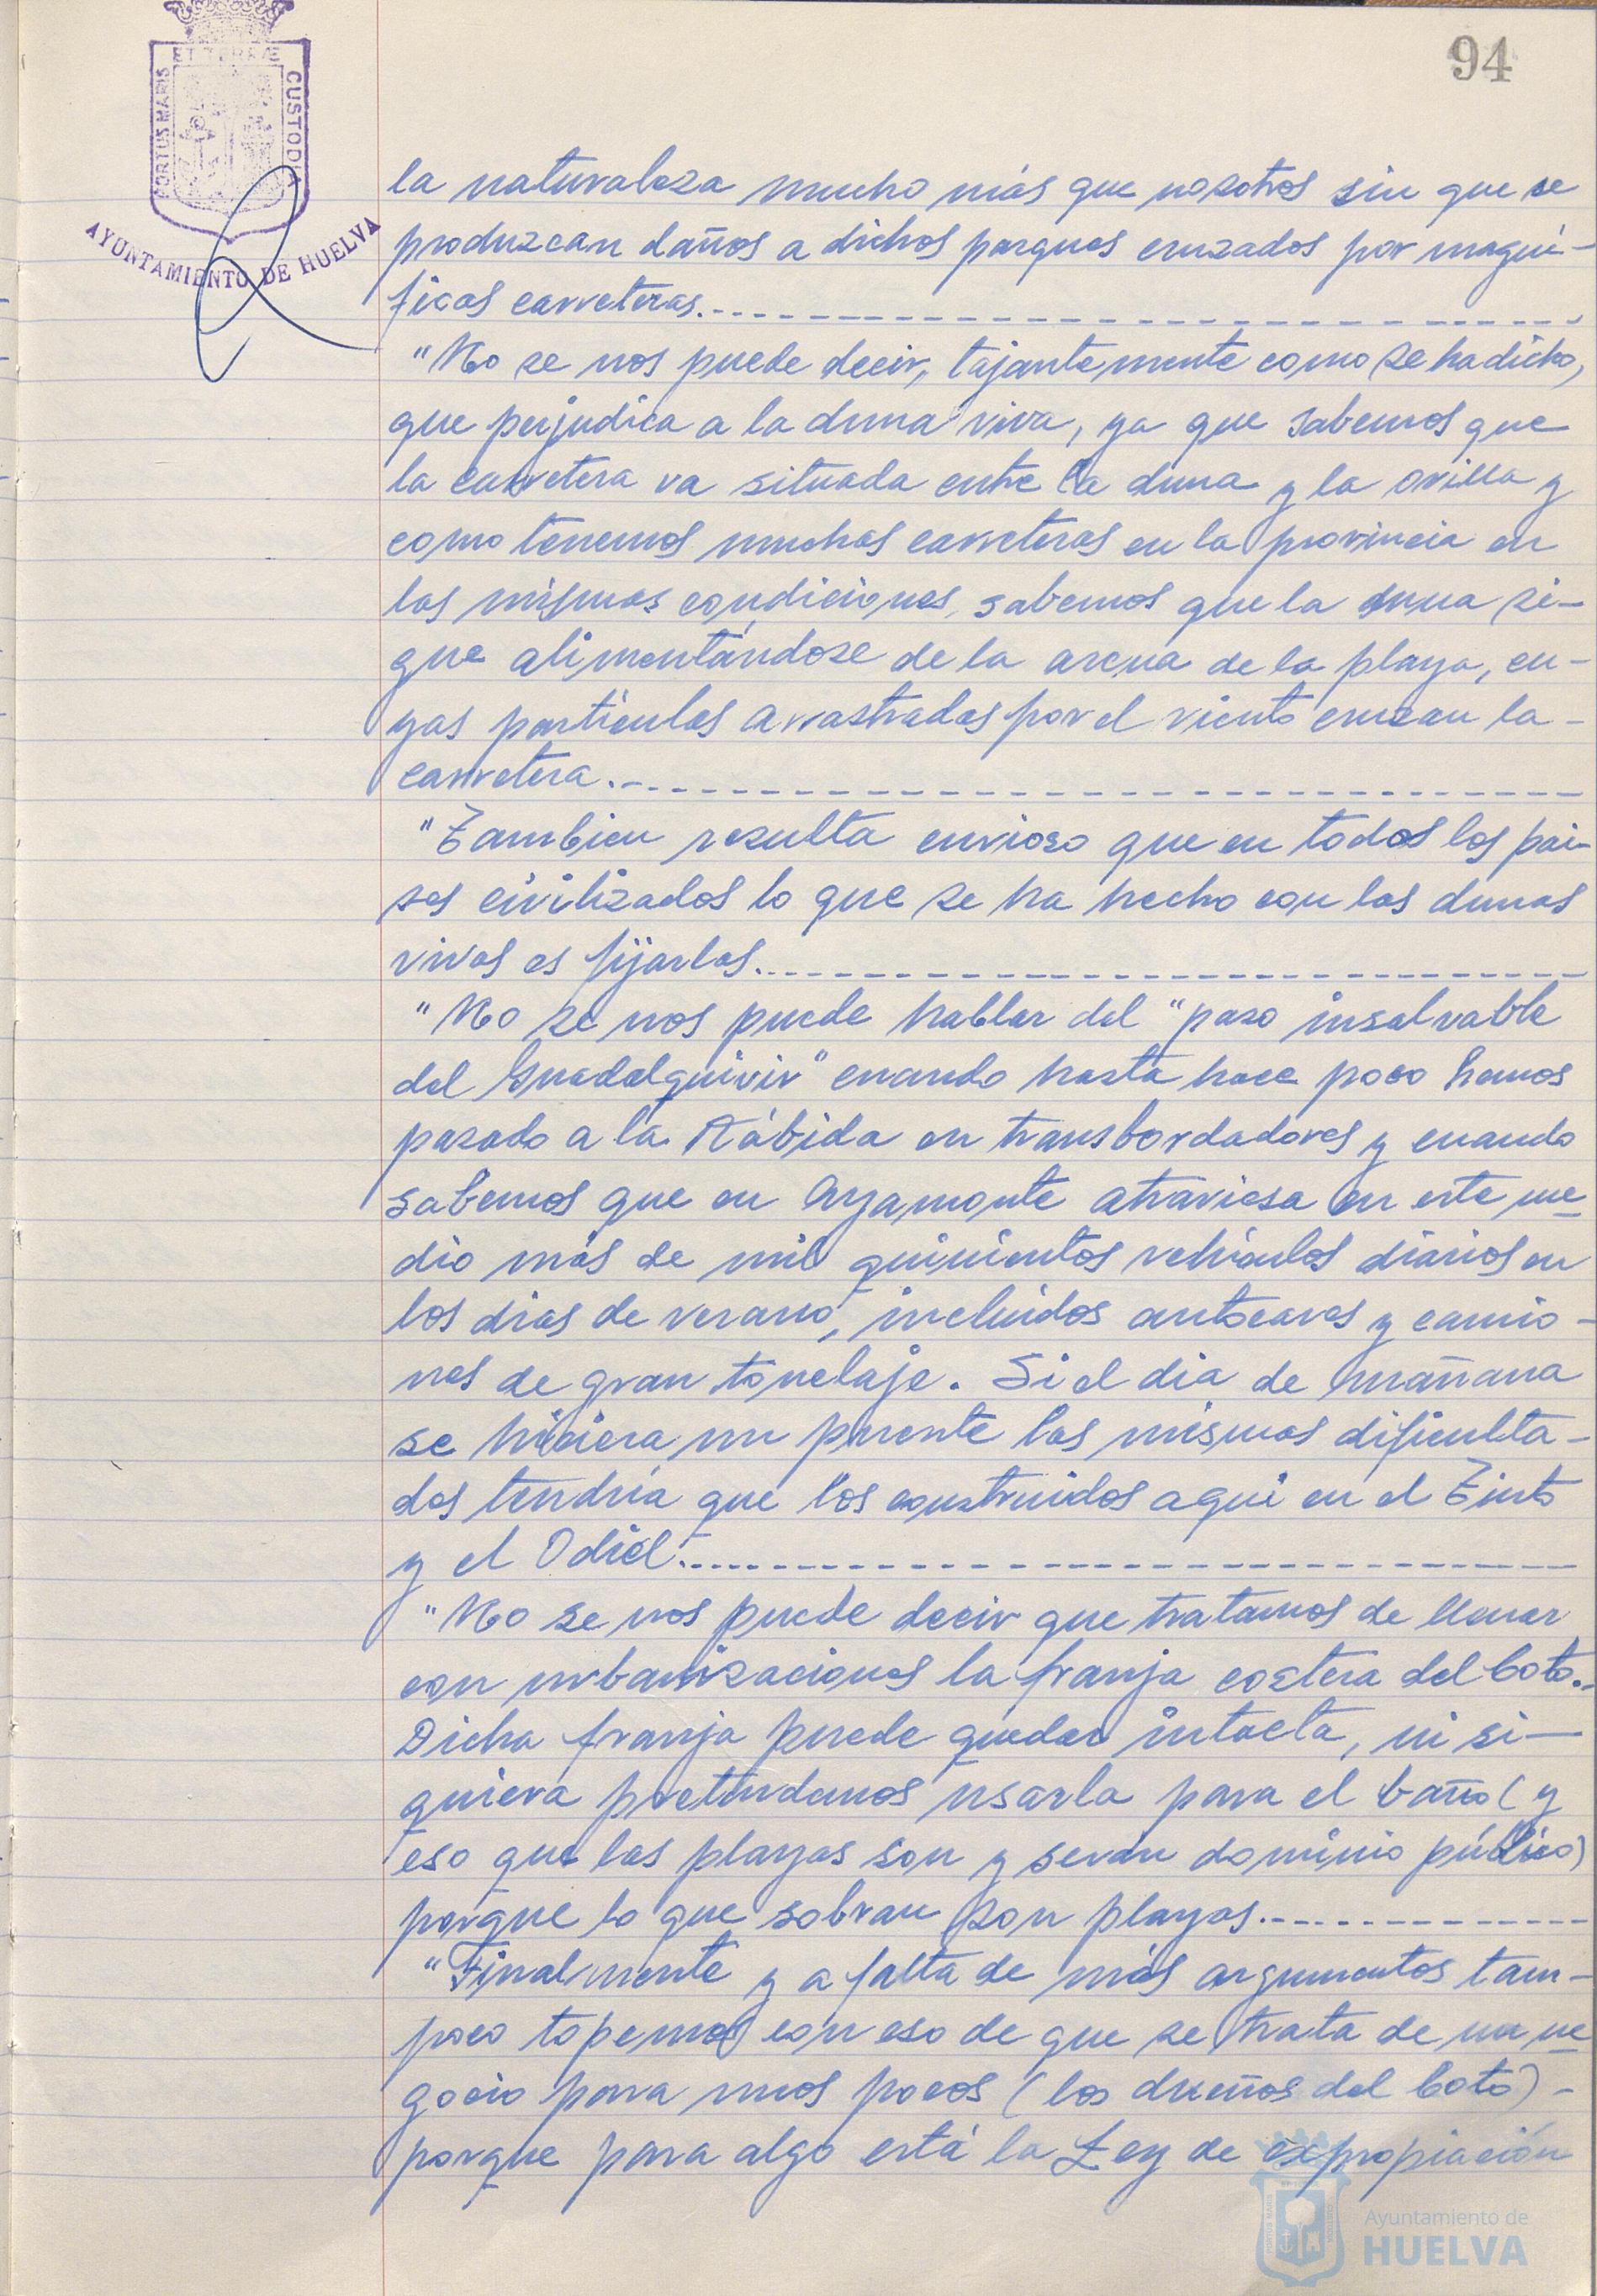 94
PORTUS MARIS
ET TERRÆ
CUSTODIA
AYUNTAMIENTO DE HUELVA
la naturaleza mucho más que nosotros sin que se
produzcan daños a dichos parques cruzados por magní-
ficas carreteras.
"No se nos puede decir, tajantemente como se ha dicho,
que perjudica a la duna viva, ya que sabemos que
la carretera va situada entre la duna y la orilla y
como tenemos muchas carreteras en la provincia en
las mismas condiciones, sabemos que la duna si-
gue alimentándose de la arena de la playa, cu-
yas partículas arrastradas por el viento cruzan la -
carretera.
"Tambien resulta curioso que en todos los pai-
ses civilizados lo que se ha hecho con las dunas
vivas es fijarlas.
"No se nos puede hablar del "paso insalvable
del Guadalquivir" cuando hasta hace poco hemos
pasado a la Rábida en transbordadores y cuando
sabemos que en Ayamonte atraviesa en este me-
dio más de mil quinientos vehículos diarios en
los dias de verano, incluidos autocares y camio-
nes de gran tonelaje. Si el dia de mañana
se hiciera un puente las mismas dificulta-
des tendría que los construidos aquí en el Tinto
y el Odiel.
"No se nos puede decir que tratamos de llenar
con urbanizaciones la franja costera del Coto.
Dicha franja puede quedar intacta, ni si-
quiera pretendemos usarla para el baño (y
eso que las playas son y serán dominio público)
porque lo que sobran son playas.
"Finalmente y a falta de más argumentos tam-
poco topemos con eso de que se trata de un ne
gocio para unos pocos (los dueños del Coto) -
porque para algo está la Ley de expropiación
Ayuntamiento de
HUELVA